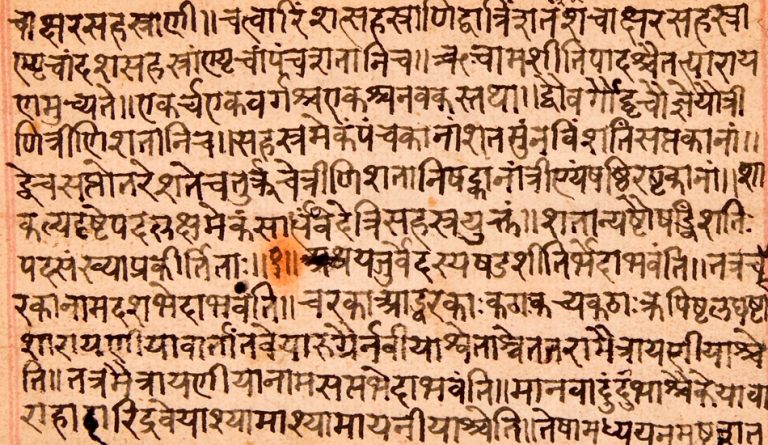 चाक्षरसहस्राणी॥चत्वारिंशत्सहस्राणिद्वात्रिंशतंशंचाक्षरसहस्रा
ण्यृचांदशसहस्रांण्यृचांपंचशतानिच॥ऋचामशीतिपादश्चैतत्पाराय
णमुच्यते॥एकर्चएकवर्गश्चएकश्चनवकस्तथा॥द्वौवर्गौद्वृचौज्ञेयौत्री
णित्रीणिशतानिच॥सहस्रमेकंपंचकानांशतसुंनविंशतिसप्तकानां॥
द्वेचसप्तोतरेशतेचतुर्क्कचेत्रीणिशतानिषट्कानांत्रीण्यंषष्ठिरष्टकानां॥शा
कल्यदृष्टेपदलक्षमेकंसार्धंचवेदेत्रिसहस्रयुक्तं॥शतान्यष्टौषड्विंशतिः
पदसंख्याप्रकीर्तिताः॥१॥अथयजुर्वेदस्यषडशीतिर्भेदाभवंति॥तत्रच
रकानामदशभेदाभवंति॥चरकाआहूरकाःकठाकच्यकठाः
शारायणीयावार्तांतवेयाः
ति॥तत्रमैत्रायणीयानामसप्तभेदाभवंति॥मानवादुंदुभाश्चैकेयावा
राहाहारिद्रवेयाश्यामाश्यामायनीयाश्चेति॥तेषामध्ययनमष्ट